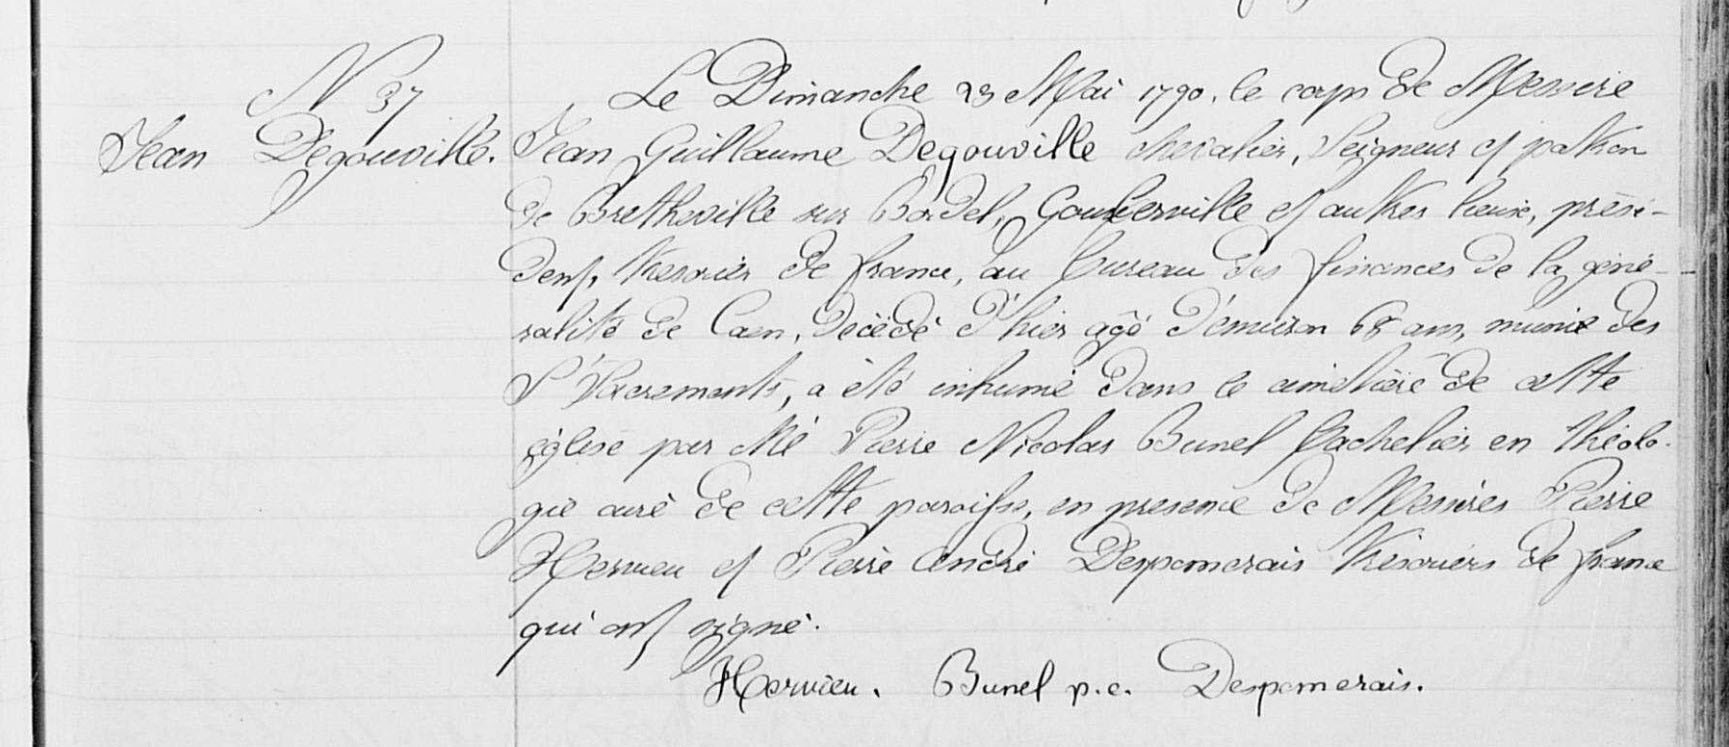 N 37
Jean Degouville.
Le Dimanche 23 Mai 1790, le corps de Messire
Jean Guillaume Degouville chevalier, Seigneur et patron
de Bretheville sur Bordel, Gouberville et autres lieux, prési-
dent trésorier de france, au bureau des finances de la géné-
ralité de Caen, décédé d'hier agé d'environ 68 ans, munie des
St Sacrements, a été inhumé dans le cimetière de cette
église par Me Pierre Nicolas Bunel bachelier en théolo-
gie curé de cette paroisse, en presence de Messires Pierre
Hervieu et Pierre André Despomerais trésoriers de france
qui ont signé.
Hervieu. Bunel p.c. Despomerais.